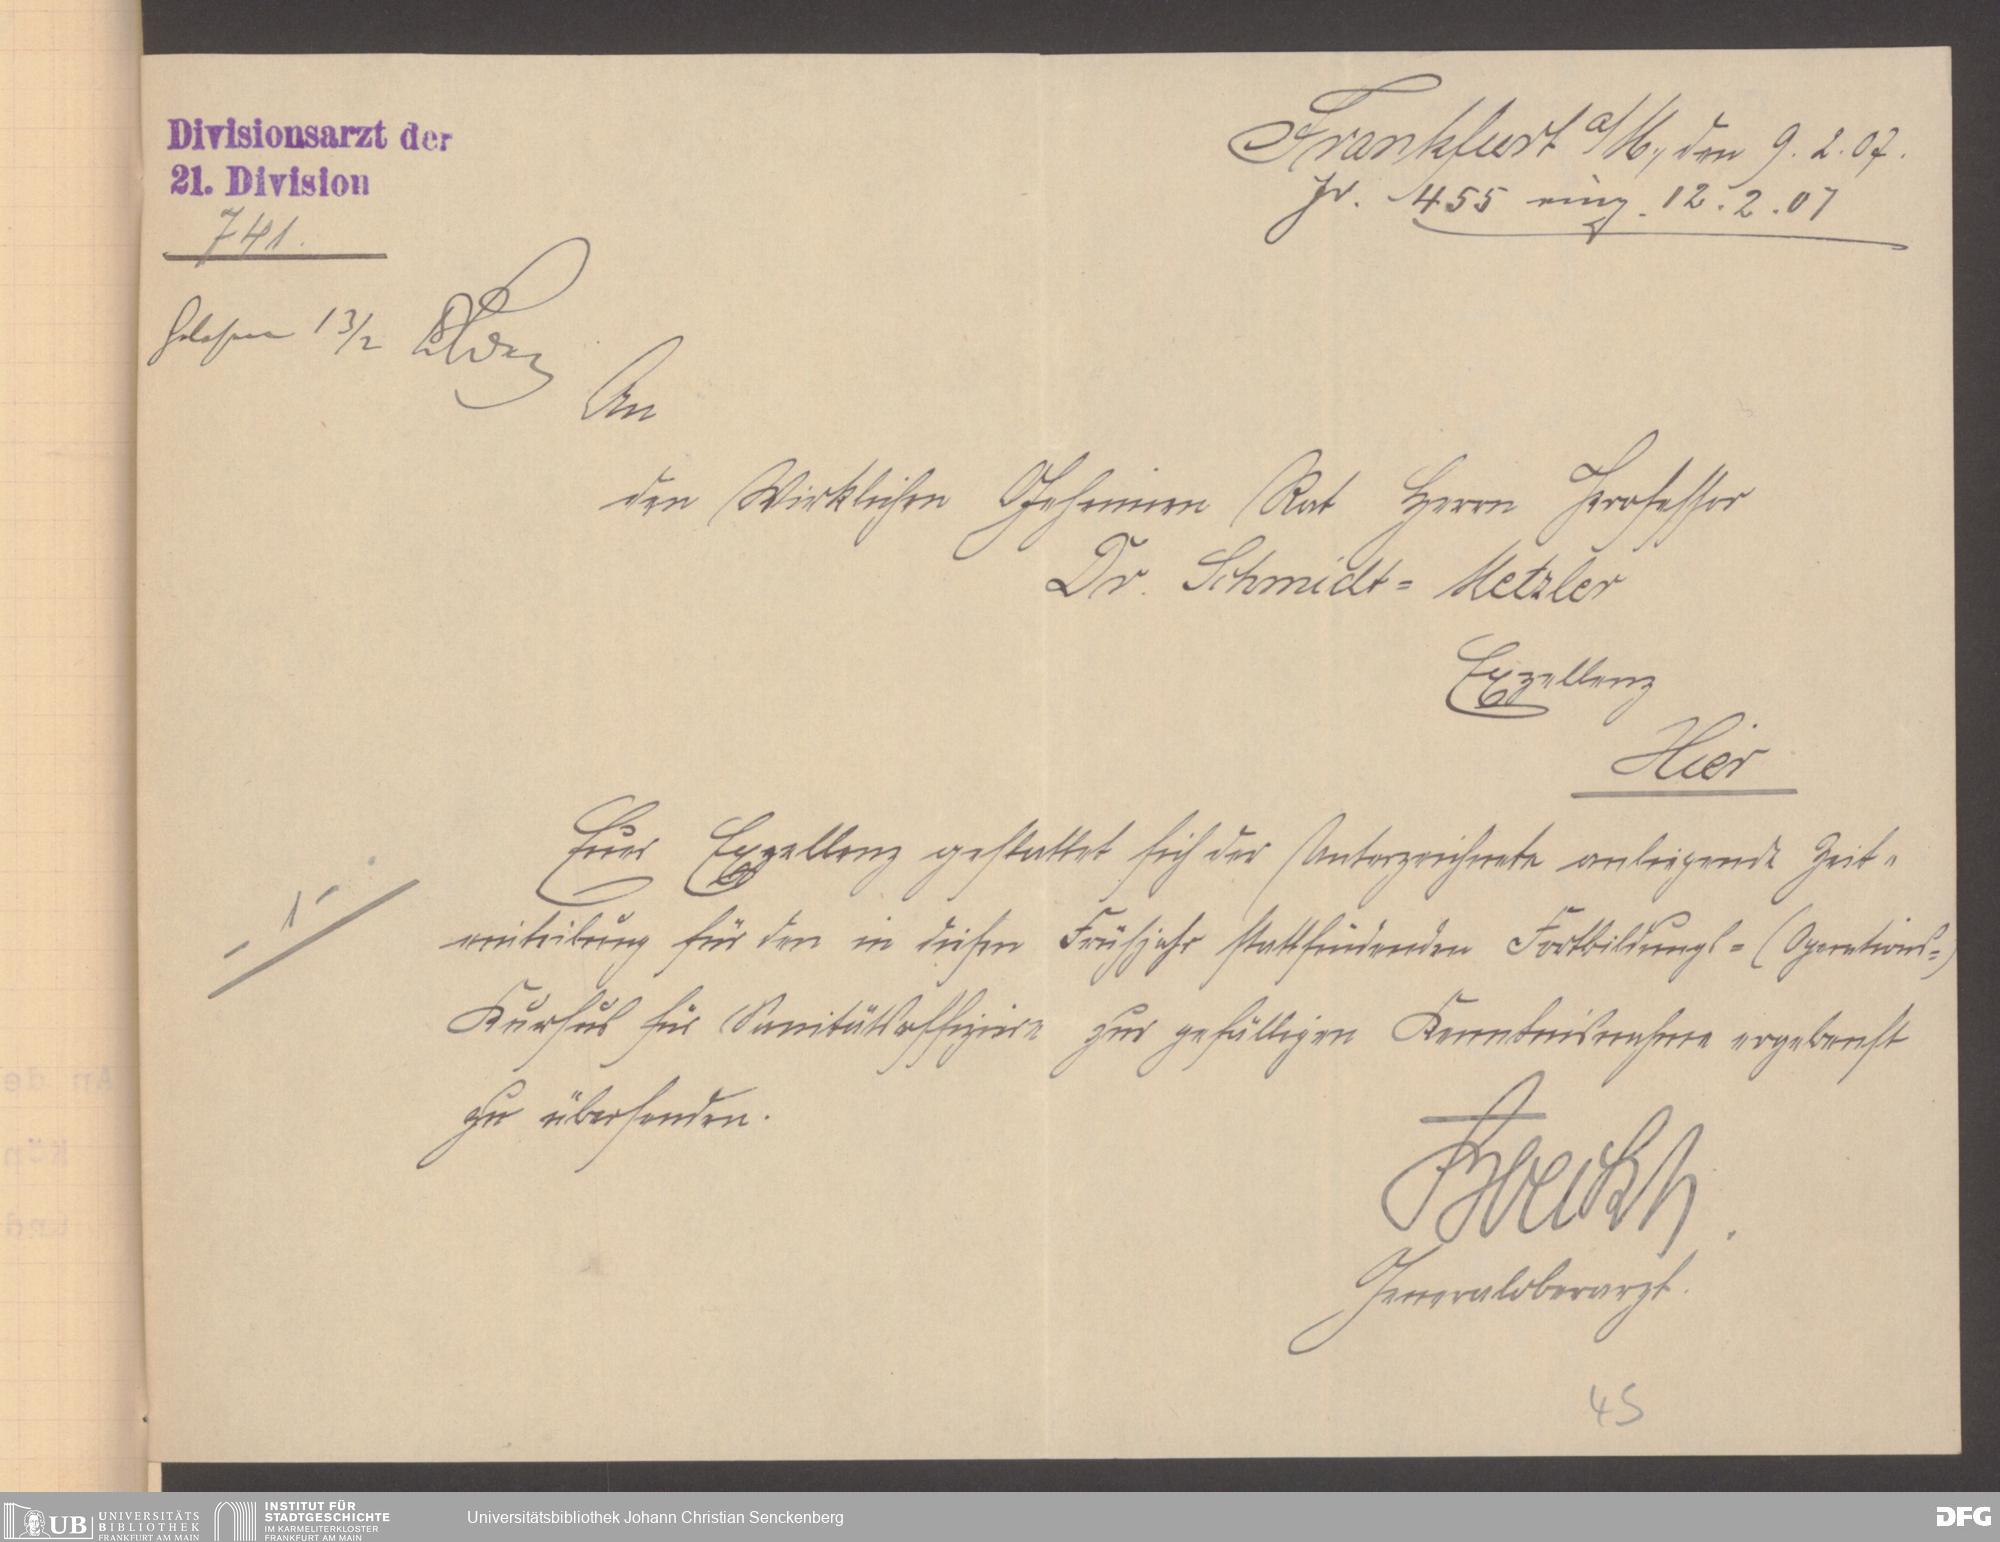 Divisionsarzt der
21. Division
741.
Frankfurt a/M., den 9. 2. 07.
Jr. 455 eing. 12.2.07
Gelesen 13/2
An
den Wirklichen Geheimen Rat Herrn Professor
Dr. Schmidt= Metzler
Exzellenz
Hier
Euer Exzellenz gestattet sich der Unterzeichnete anliegende Zeit=
- 1 -
einteilung für den in diesem Frühjahr stattfindenden Fortbildungs=(Operations=)
Kursus für Sanitätsoffiziere zur gefälligen Kenntnisnahme ergebenst
zu übersenden.
Generaloberarzt.
45
UB UNIVERSITÄTS
BIBLIOTHEK
FRANKFURT AM MAIN
INSTITUT FÜR
STADTGESCHICHTE
IM KARMELITERKLOSTER
FRANKFURT AM MAIN
Universitätsbibliothek Johann Christian Senckenberg
DFG